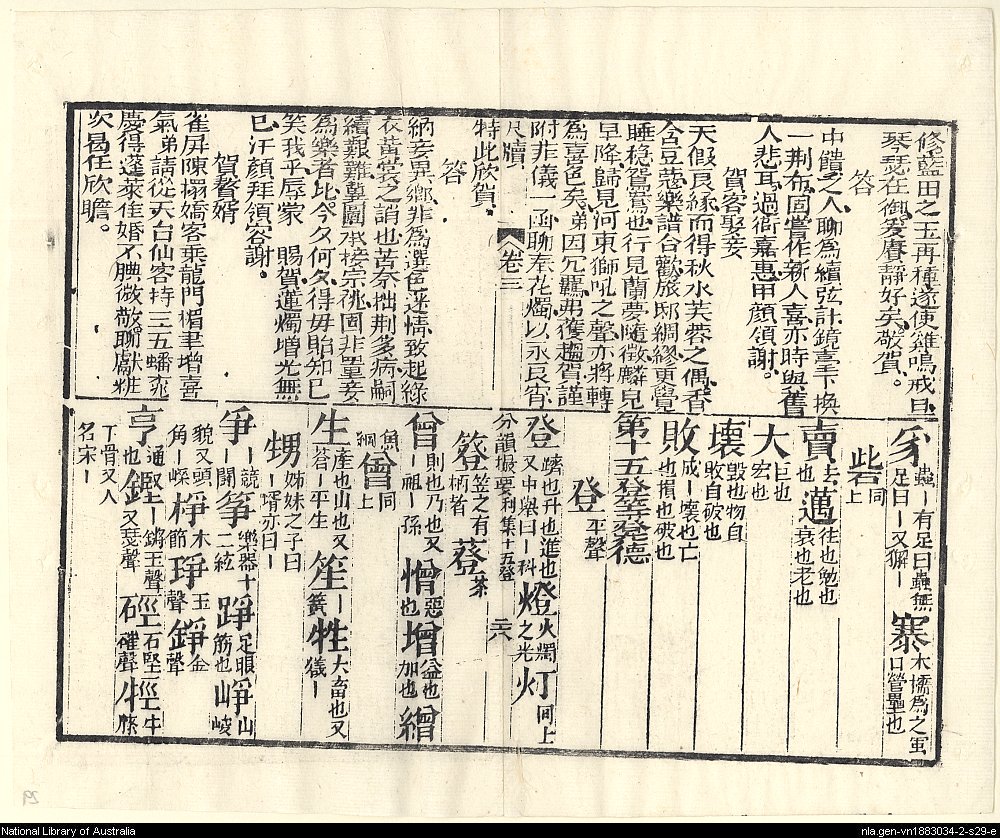 修藍田之玉再種遂使雞鳴戒旦
琴瑟在御爰賡靜好矣敬賀。
答
中饋乏人聊為續弦計鏡臺下換
一荆布固嘗作新人喜亦時與舊
人悲耳過衙嘉惠甲顏領謝。
賀客娶妾
天假良緣而得秋水芙蓉之偶。香
含豆蔻樂譜合歡旅邸綢繆更覺
睡稳鴛鴦也行見蘭夢隨徵麟兒
早降歸見河東獅吼之聲亦將轉
為喜色矣弟因冗羈弗獲趨賀謹
附非儀一函聊奉花燭以永良宵
尺牘
卷三
特此欣賀。
答
納妾異鄉非為選色迷情致起綠
衣黃裳之誚也苦奈拙荆多病嗣
續艱難冀圖承接宗祧固非單妾
為樂者比今夕何夕得毋貽知己
笑我乎辱蒙 賜賀蓮燭增光無
已汗顏拜領容謝。
賀贅婿
雀屏陳搦嬌客乘龍門楣聿增喜
氣弟請從天台仙客持三五蟠桃
慶得蓬萊佳婚不腆微敬聊獻粧
次曷任欣瞻。
豸 蟲丨有足曰蟲無足曰丨又獬丨
寨 木㙇為之軍口營壘也
呰 同上
賣 去也
邁 往也勉也衰也老也
大 巨也宏也
壞 毀也物自敗自破也
敗 成丨壞也亡也損也破也
第十五登等凳德
登 平聲
登 躋也升也進也又中舉曰丨科
燈 火燭之光
灯 同上
分韻撮要利集十五登
六
簦 笠之有柄者
䔲 茶
曾 則也乃也又丨祖丨孫
憎 惡也
增 益也加也
繒 魚網
曾 同上
生 產也山也又荅丨平生
笙 丨簧
牲 大畜也又犧丨
甥 姊妹之子曰丨壻亦曰丨
爭 丨競丨鬬
箏 樂器十二絃
踭 足眼筋也
崢 山崚貌又頭角丨嶸
棦 木節
琤 玉聲
錚 金聲
亨 通也
鏗 丨鏘玉聲又瑟聲
硜 石堅確聲
牼 牛膝丁骨又人名宋丨
National Library of Australia
nla.gen-vn1883034-2-s29-e